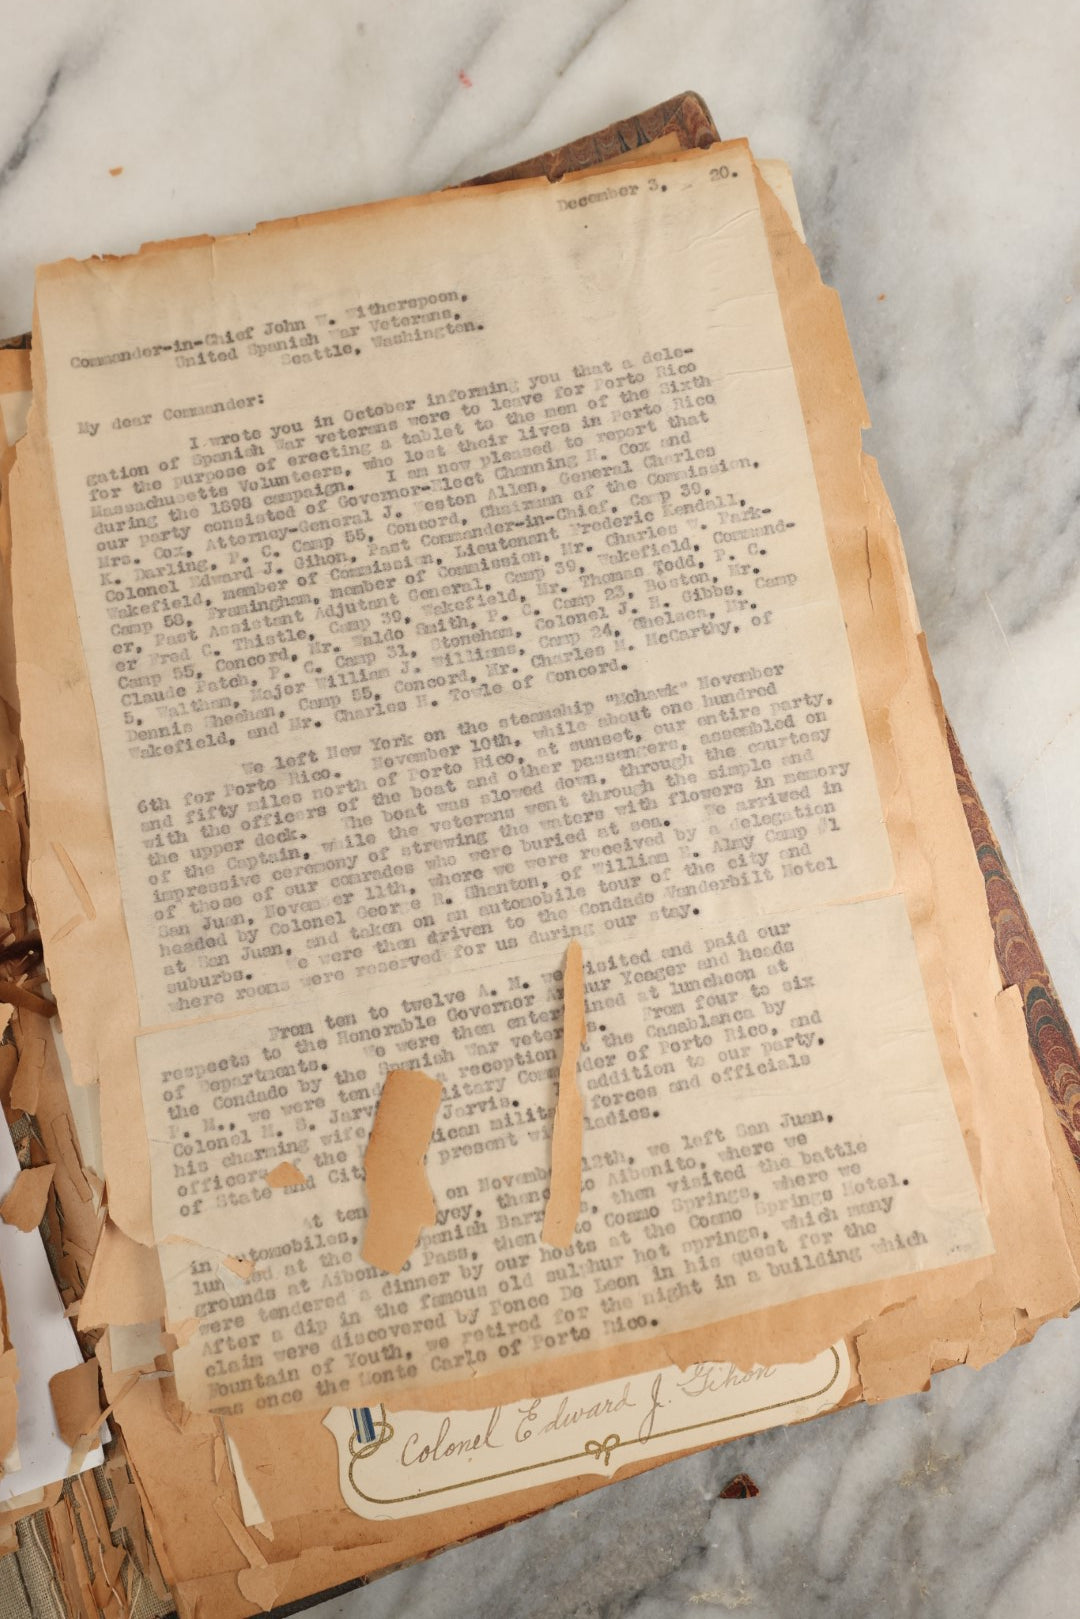 December 3, 20.
Commander-in-Chief John W. Witherspoon,
United Spanish War Veterans,
Seattle, Washington.
My dear Commander:
I wrote you in October informing you that a dele-
gation of Spanish War veterans were to leave for Porto Rico
for the purpose of erecting a tablet to the men of the Sixth
Massachusetts Volunteers, who lost their lives in Porto Rico
during the 1898 campaign. I am now pleased to report that
our party consisted of Governor-Elect Channing H. Cox and
Mrs. Cox, Attorney-General J. Weston Allen, General Charles
K. Darling, P. C. Camp 55, Concord, Chairman of the Commission,
Colonel Edward J. Gihon, Past Commander-in-Chief, Camp 39,
Wakefield, member of Commission, Lieutenant Frederic Kendall,
Camp 58, Framingham, member of Commission, Mr. Charles W. Park-
er, Past Assistant Adjutant General, Camp 39, Wakefield, Command-
er Fred C. Thistle, Camp 39, Wakefield, Mr. Thomas Todd, P. C.
Camp 55, Concord, Mr. Waldo Smith, P. C. Camp 23, Boston, Mr.
Claude Patch, P. C. Camp 31, Stoneham, Colonel J. H. Gibbs, Camp
5, Waltham, Major William J. Williams, Camp 24, Chelsea, Mr.
Dennis Sheehan, Camp 55, Concord, Mr. Charles M. McCarthy, of
Wakefield, and Mr. Charles H. Towle of Concord.
We left New York on the steamship "Mohawk" November
6th for Porto Rico. November 10th, while about one hundred
and fifty miles north of Porto Rico, at sunset, our entire party,
with the officers of the boat and other passengers, assembled on
the upper deck. The boat was slowed down, through the courtesy
of the Captain, while the veterans went through the simple and
impressive ceremony of strewing the waters with flowers in memory
of those of our comrades who were buried at sea. We arrived in
San Juan, November 11th, where we were received by a delegation
headed by Colonel George R. Shanton, of William E. Almy Camp #1
at San Juan, and taken on an automobile tour of the city and
suburbs. We were then driven to the Condado Vanderbilt Hotel
where rooms were reserved for us during our stay.
From ten to twelve A. M. we visited and paid our
respects to the Honorable Governor Arthur Yeager and heads
of Departments. We were then entertained at luncheon at
the Condado by the Spanish War veterans. From four to six
P. M., we were tend a reception t the Casablanca by
Colonel M. S. Jarvi ilitary Com der of Porto Rico, and
his charming wife, Jarvis. addition to our party,
officers of the ican milita forces and officials
of State and City present wi ladies.
At ten on Novemb 12th, we left San Juan,
in automobiles, yey, thenc to Aibonito, where we
lun ed at the panish Barr s, then visited the battle
grounds at Aibonito Pass, then to Coamo Springs, where we
were tendered a dinner by our hosts at the Coamo Springs Hotel.
After a dip in the famous old sulphur hot springs, which many
claim were discovered by Ponce De Leon in his quest for the
Fountain of Youth, we retired for the night in a building which
was once the Monte Carlo of Porto Rico.
Colonel Edward J. Gihon